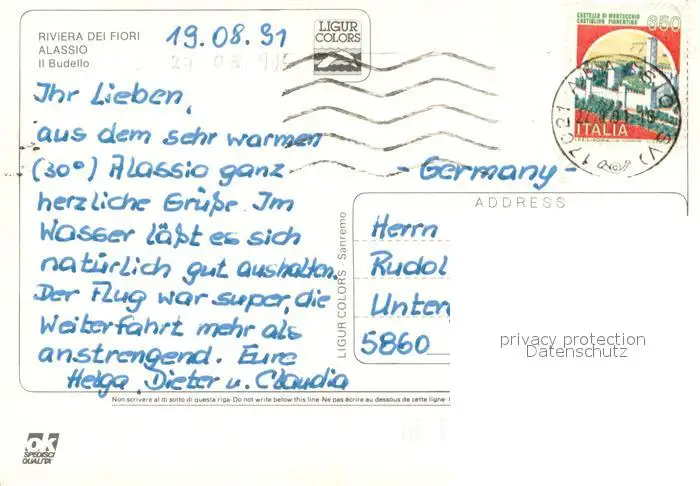 RIVIERA DEI FIORI
ALASSIO
Il Budello
19.08.91
LIGUR
COLORS
CASTELLO DI MONTECCHIO
CASTIGLION FIORENTINO
650
ITALIA
Ihr Lieben,
aus dem sehr warmen
(30°) Alassio ganz
herzliche Grüße. Im
Wasser läßt es sich
natürlich gut aushalten.
Der Flug war super, die
Weiterfahrt mehr als
anstrengend. Eure
Helga, Dieter u. Claudia
- Germany -
ADDRESS
Herrn
Rudol
Unter
5860
privacy protection
Datenschutz
LIGUR COLORS Sanremo
Non scrivere al di sotto di questa riga - Do not write below this line - Ne pas écrire au dessous de cette ligne -
ok
SPEDISCI
QUALITA'